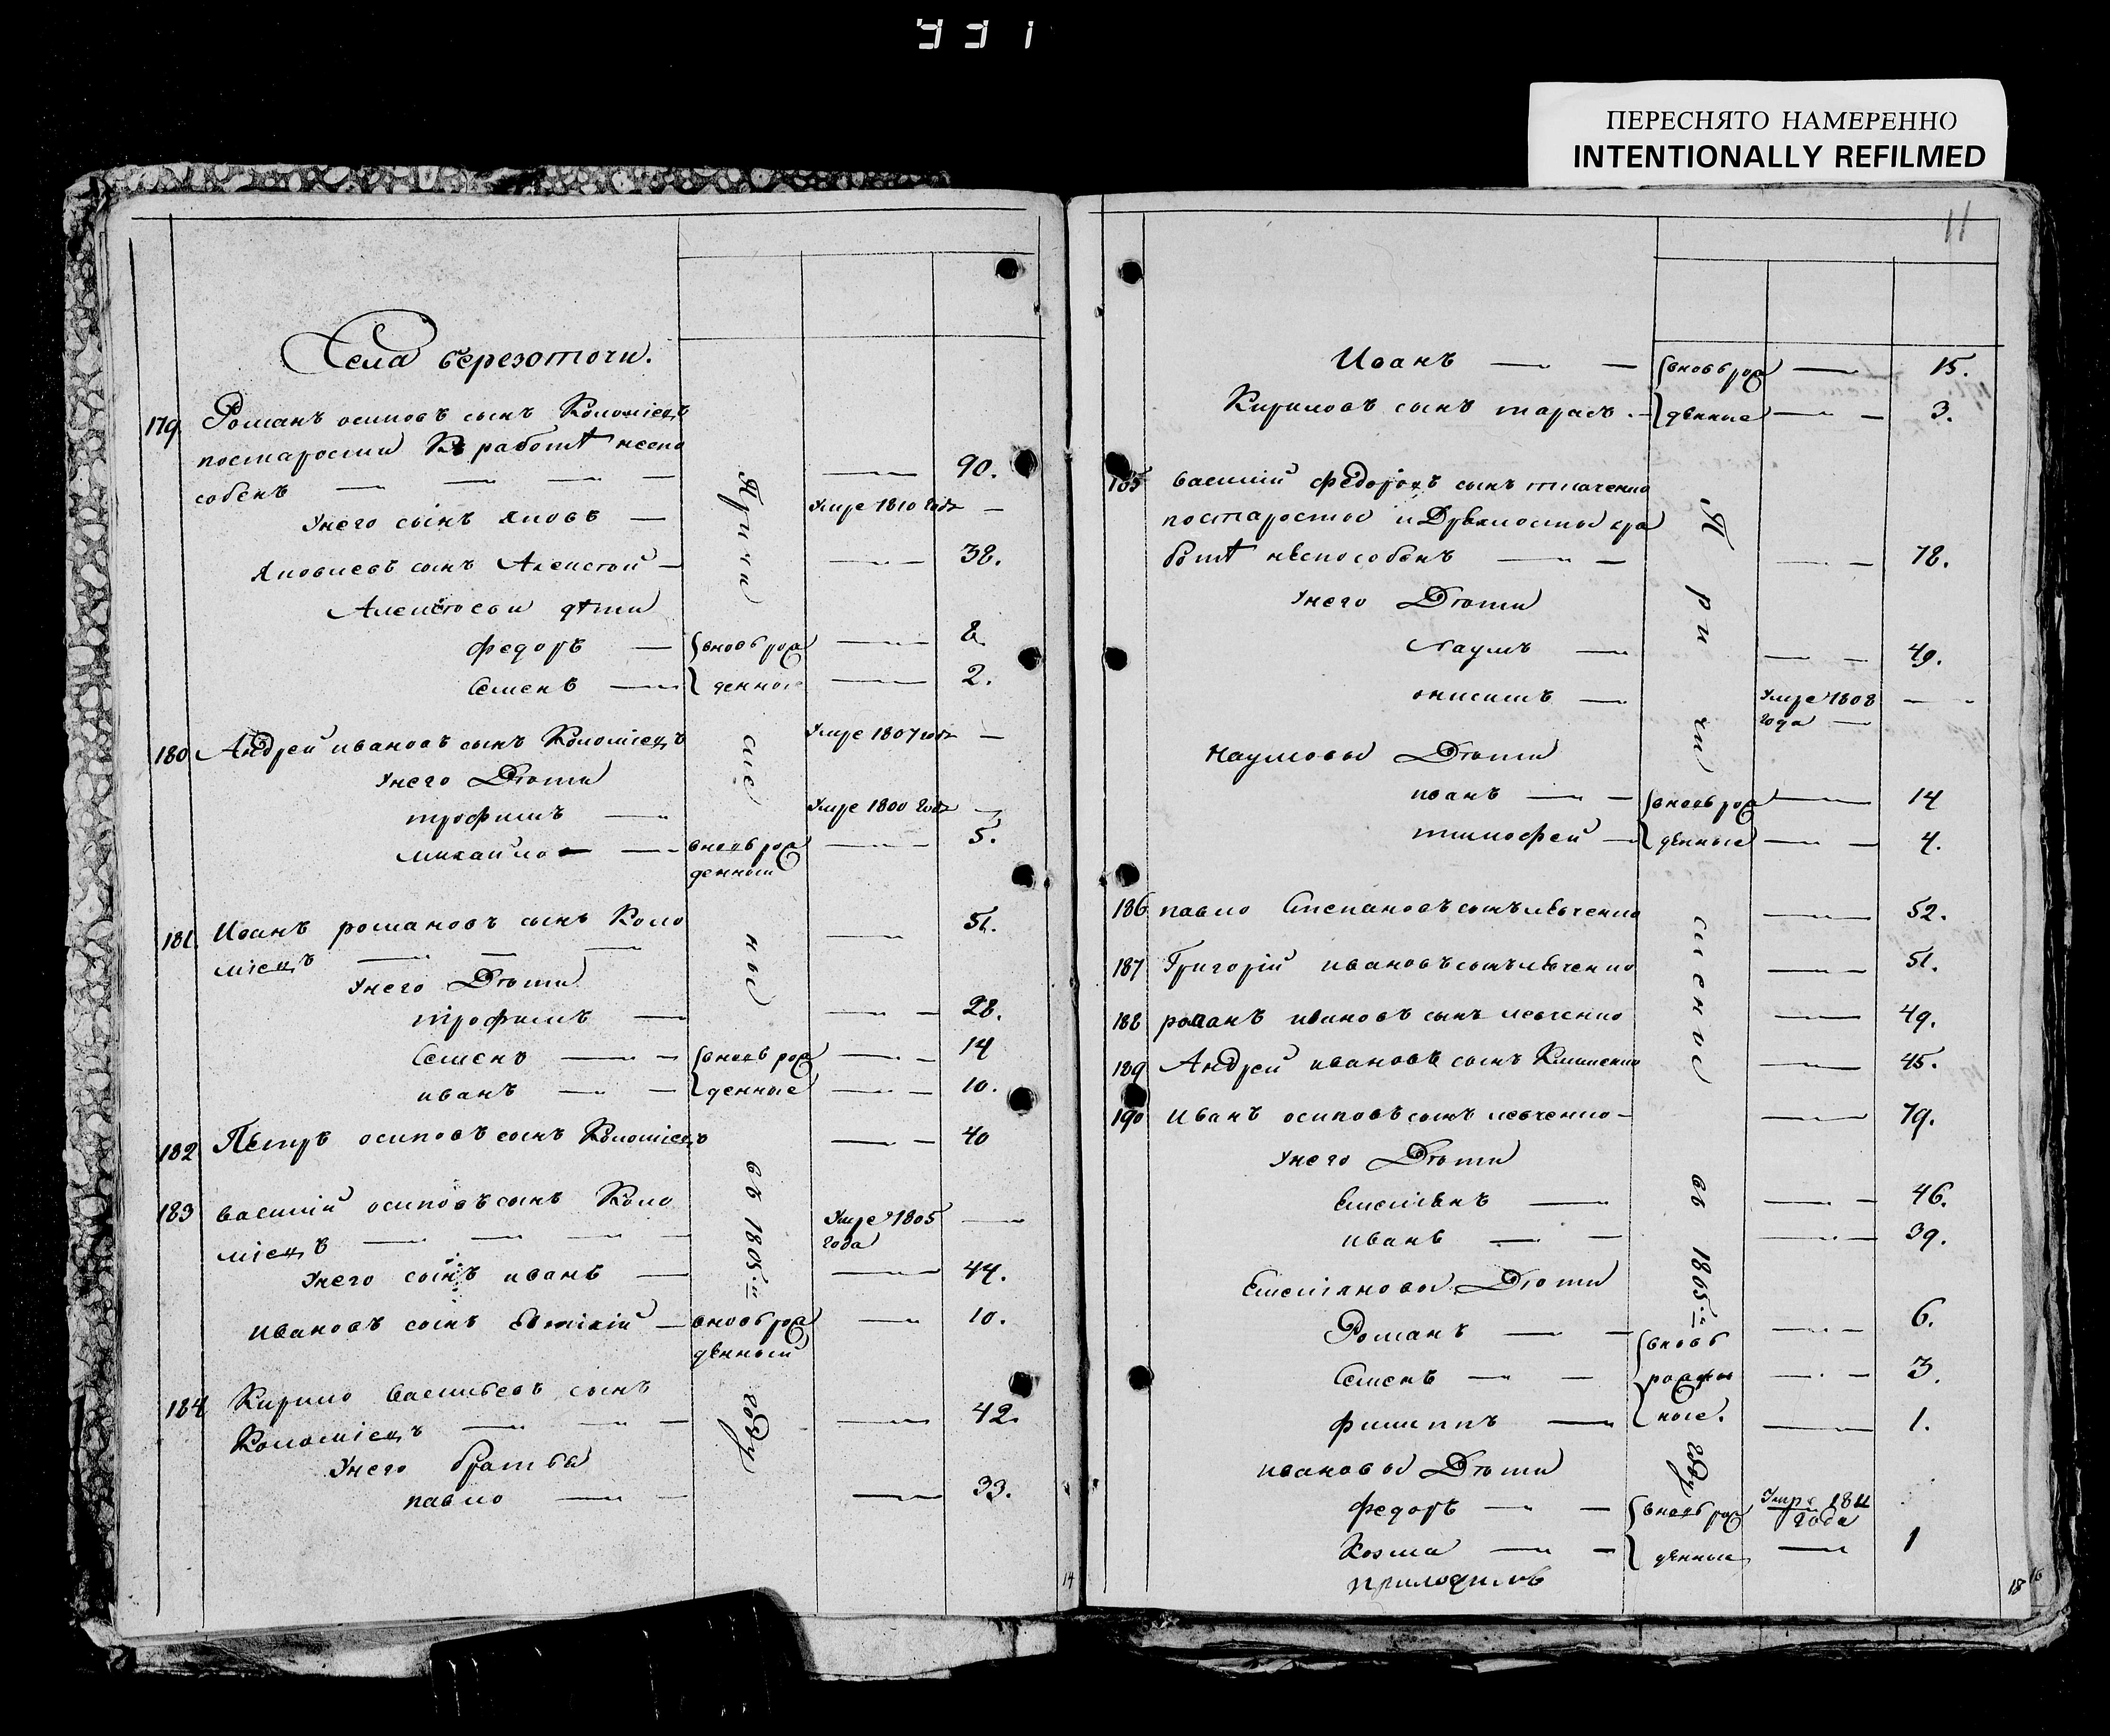 331
ПЕРЕСНЯТО НАМЕРЕННО
INTENTIONALLY REFILMED
Села березоточи.
179 Романъ осиповъ сынъ Коломіецъ
постарости Къ работѣ неспо
собенъ — — — — 90.
Унего сынъ яковъ — Умре 1810 года —
яковлевъ сынъ Алексѣй — — 38.
Алексѣевы дѣти
федоръ — вновь рож — 8
Семенъ — денные — 2.
180 Андрей ивановъ сынъ Коломіецъ Умре 1807 года —
Унего Дѣти
трофимъ — Умре 1800 года —
михайло — вновь рож — 5.
денный
181 Иванъ романовъ сынъ Коло — 51.
міецъ — — —
Унего Дѣти
трофимъ — — 28.
Семенъ — вновь рож — 14
иванъ — денные — 10.
182 Петръ осиповъ сынъ Коломіецъ — 40
183 василій осиповъ сынъ Коло Умре 1805 —
міецъ — — — — года
Унего сынъ иванъ — — 44.
ивановъ сынъ — вновь рож — 10.
денный
184 Кирило васильевъ сынъ
Коломіецъ — — — — 42.
Унего братья
павло — — — 33.
Причи
сле
ные
въ 1805:м
году
14
11
Иванъ — — вновь рож — 15.
Кириловъ сынъ тарасъ. — денные — 3.
185 василій федоровъ сынъ ткаченко
постаросты и Древности кра
ботѣ неспособенъ — — — 78.
Унего Дѣти
Наумъ — — 40.
онисимъ — Умре 1808 —
года —
Наумовы Дѣти
иванъ — — вновь рож — 14
тимофей — денные — 4.
186 павло Степановъ сынъ левченко — 52.
187 Григорій ивановъ сынъ левченко — 51.
188 романъ ивановъ сынъ левченко — 49.
189 Андрей ивановъ сынъ Клименко — 45.
190 иванъ осиповъ сынъ левченко — — 79.
Унего Дѣти
Емеліянъ — — 46.
иванъ — — — 39.
Емеліяновы Дѣти
Романъ — — вновь — 6.
Семенъ — — рожден — 3.
филиппъ — ные. — 1.
ивановы Дѣти
федоръ — — вновь рож Умре 1811
года
Козма — — денные — 1
При
чи
сленые
въ 1805:м
году
18
16